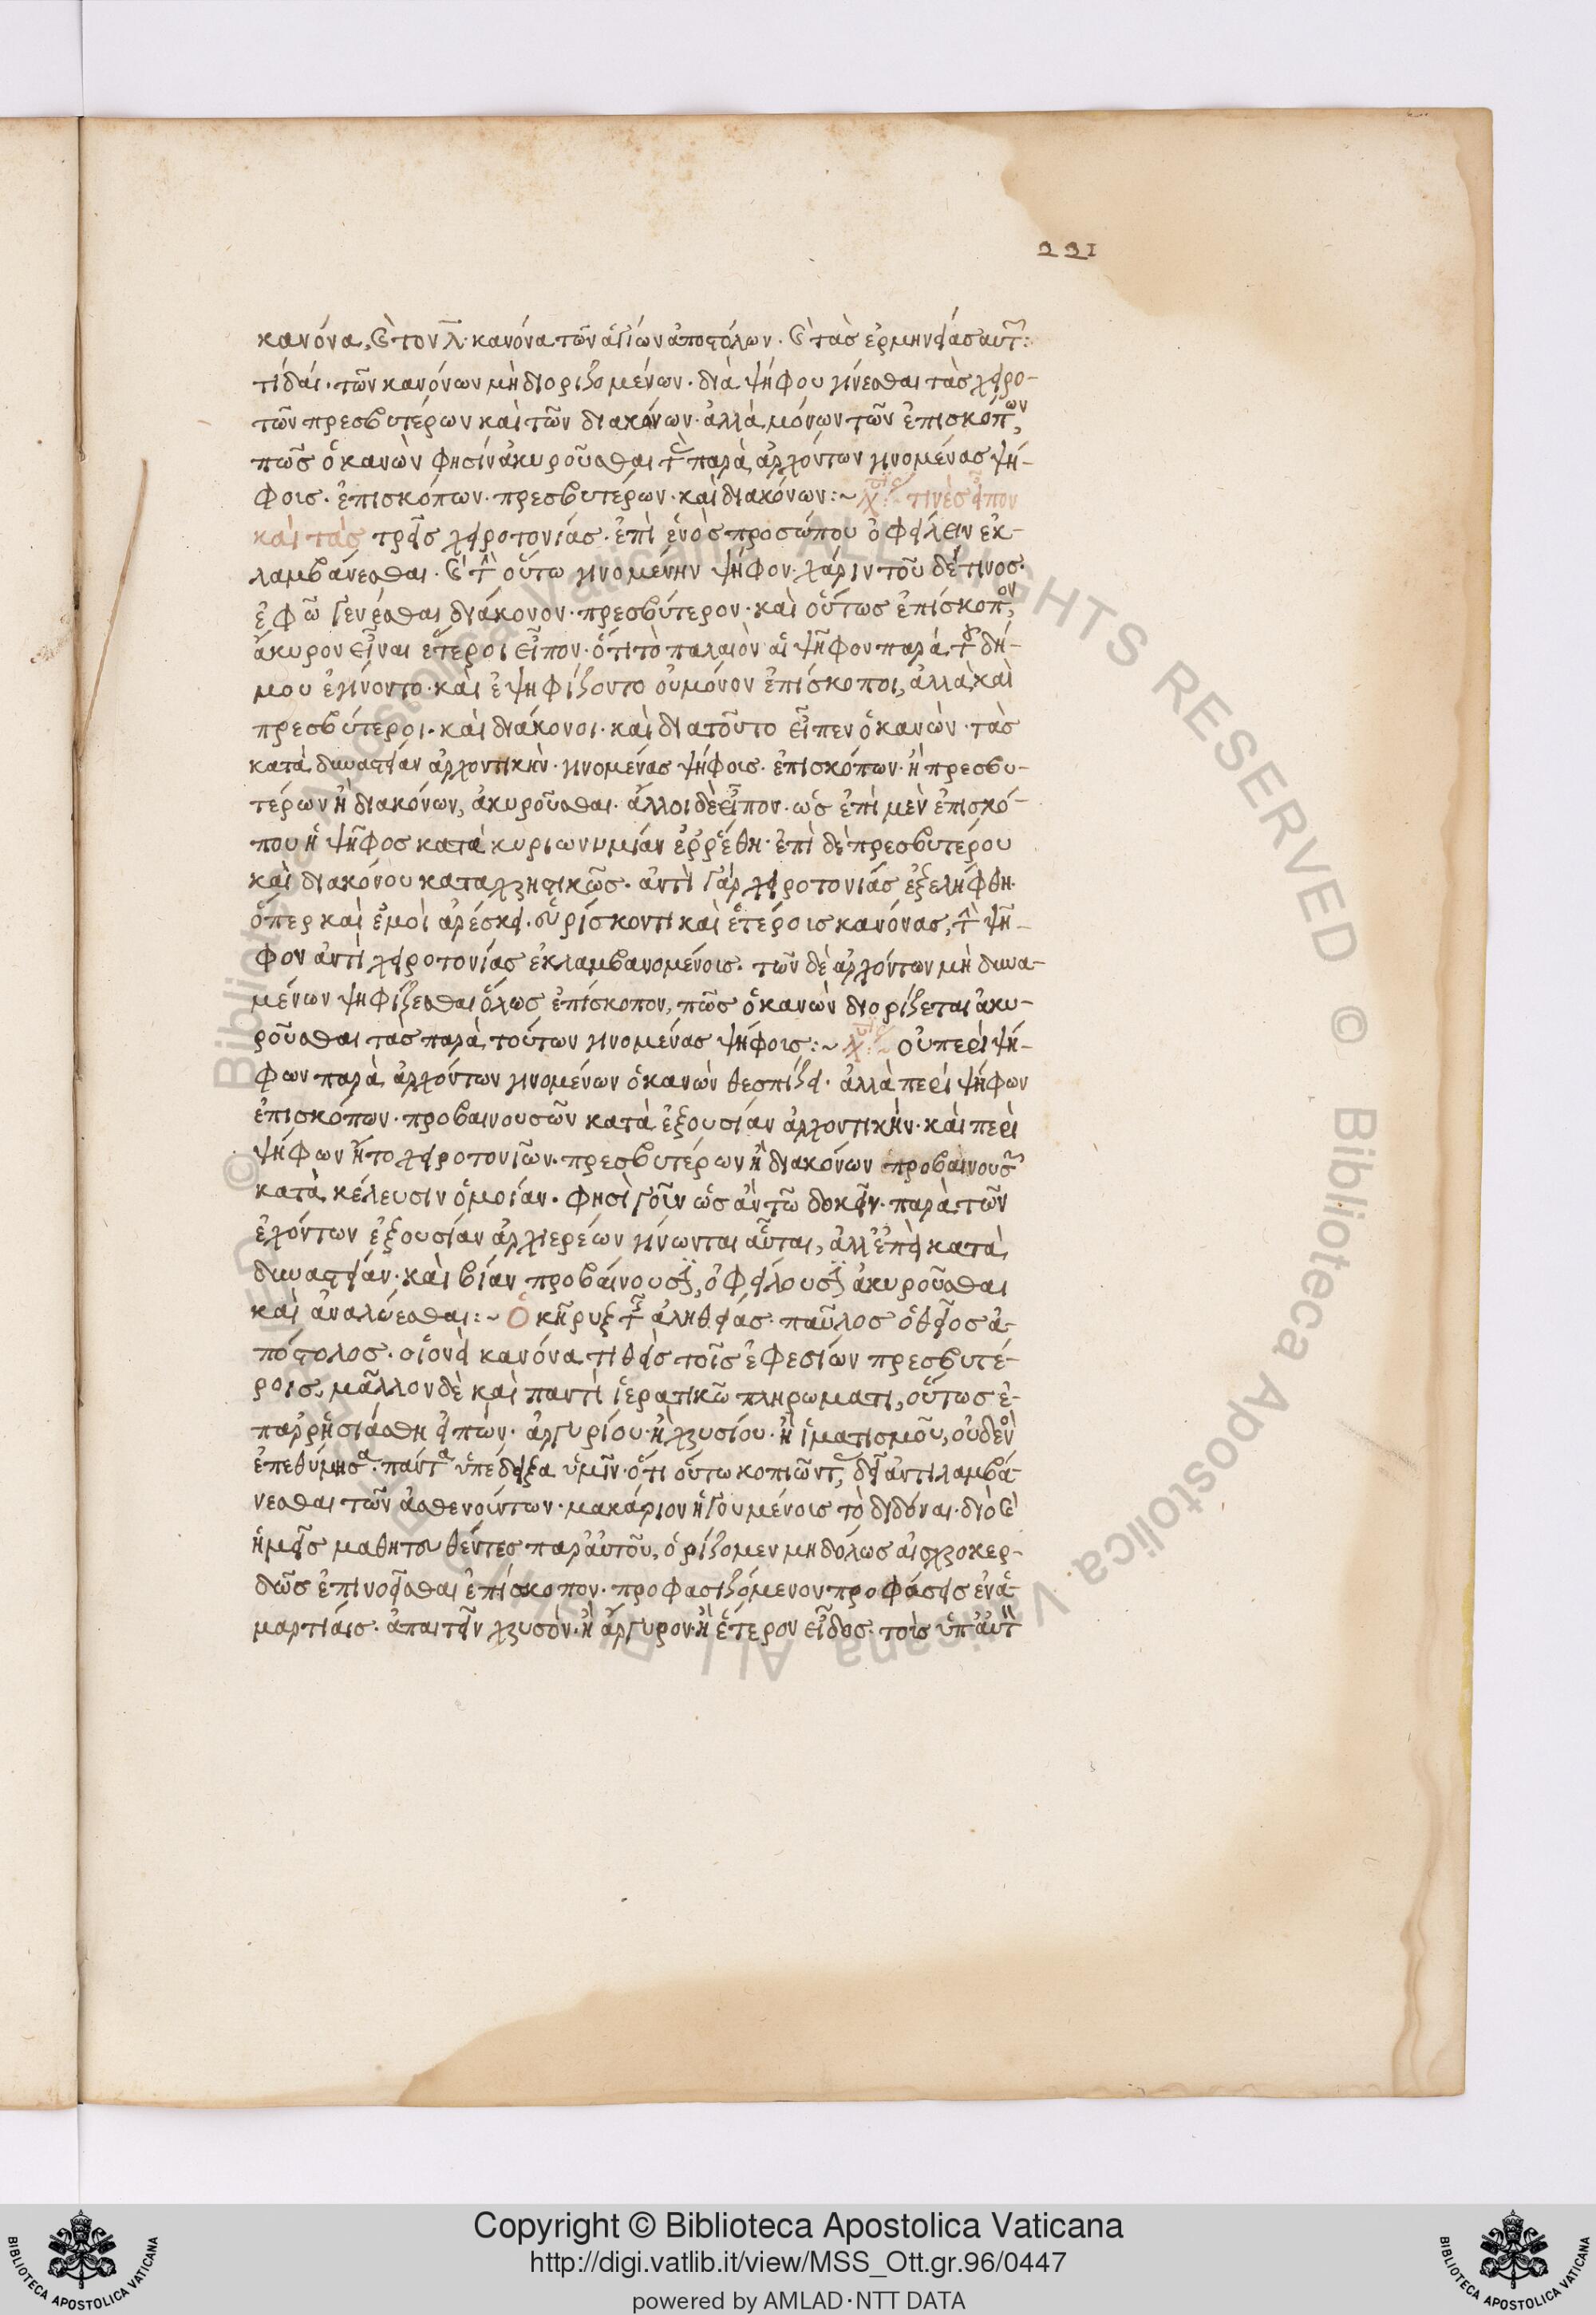 221
κανόνα, καὶ τὸν λ. κανόνα τῶν ἁγίων ἀποστόλων. καὶ τὰς ἑρμηνείας αὐτῶν:
τί δαί. τῶν κανόνων μὴ διοριζομένων. διὰ ψήφου γίνεσθαι τὰς χειρο-
τῶν πρεσβυτέρων καὶ τῶν διακόνων. ἀλλὰ μόνων τῶν ἐπισκόπων,
πῶς ὁ κανὼν φησὶν ἀκυροῦσθαι τὰς παρὰ ἀρχόντων γινομένας ψή-
φοις. ἐπισκόπων. πρεσβυτέρων. καὶ διακόνων:~ τινὲς εἶπον
καὶ τὰς τρεῖς χειροτονίας. ἐπὶ ἑνὸς προσώπου ὀφείλειν ἐκ-
λαμβάνεσθαι. καὶ τὴν οὕτω γινομένην ψῆφον. χάριν τοῦ δέ τινος.
ἐφῶ γενέσθαι διάκονον. πρεσβύτερον. καὶ οὕτως ἐπίσκοπον,
ἄκυρον εἶναι ἕτεροι εἶπον. ὅτι τὸ παλαιὸν αἱ ψῆφον παρὰ τοῦ δή-
μου ἐγίνοντο. καὶ ἐψηφίζοντο οὐ μόνον ἐπίσκοποι, ἀλλὰ καὶ
πρεσβύτεροι. καὶ διάκονοι. καὶ διατοῦτο εἶπεν ὁ κανὼν. τὰς
κατὰ δυναστείαν ἀρχοντικὴν. γινομένας ψήφοις. ἐπισκόπων. ἢ πρεσβυ-
τέρων ἢ διακόνων, ἀκυροῦσθαι. ἄλλοι δὲ εἶπον. ὡς ἐπὶ μὲν ἐπισκό-
που ἡ ψῆφος κατὰ κυριωνυμίαν ἐρρέθη. ἐπὶ δὲ πρεσβυτέρου
καὶ διακόνου καταχρηστικῶς. ἀντὶ γὰρ χειροτονίας ἐξελήφθη.
ὅπερ καὶ ἐμοὶ ἀρέσκει. εὑρίσκοντι καὶ ἑτέροις κανόνας, τὴν ψῆ-
φον ἀντὶ χειροτονίας ἐκλαμβανομένοις. τῶν δὲ ἀρχόντων μὴ δυνα-
μένων ψηφίζεσθαι ὅλως ἐπίσκοπον, πῶς ὁ κανὼν διορίζεται ἀκυ-
ροῦσθαι τὰς παρὰ τούτων γινομένας ψήφοις:~ οὐ περὶ ψή-
φων παρὰ ἀρχόντων γινομένων ὁ κανὼν θεσπίζει. ἀλλὰ περὶ ψήφων
ἐπισκόπων. προβαινουσῶν κατὰ ἐξουσίαν ἀρχοντικὴν. καὶ περὶ
ψήφων ἤτοι χειροτονιῶν. πρεσβυτέρων ἢ διακόνων προβαινουσῶν
κατὰ κέλευσιν ὁμοίαν. φησὶ γοῦν ὡς ἂν τῶ δοκεῖν. παρὰ τῶν
ἐχόντων ἐξουσίαν ἀρχιερέων γίνωνται αὗται, ἀλλ' ἐπεὶ κατὰ
δυναστείαν. καὶ βίαν προβαίνουσιν, ὀφείλουσιν ἀκυροῦσθαι
καὶ ἀναλύεσθαι:~ Ὁ κῆρυξ τῆς ἀληθείας. παῦλος ὁ θεῖος ἀ-
πόστολος. οἱονεὶ κανόνα τιθεὶς τοῖς ἐφεσίων πρεσβυτέ-
ροις, μᾶλλον δὲ καὶ παντὶ ἱερατικῶ πληρώματι, οὕτως ἐ-
παρρησιάσθη εἰπών. ἀργυρίου. ἢ χρυσίου. ἢ ἱματισμοῦ, οὐδενὸς
ἐπεθύμησα. πάντα ὑπέδειξα ὑμῖν. ὅτι οὕτω κοπιῶντας, δεῖ ἀντιλαμβά-
νεσθαι τῶν ἀσθενούντων. μακάριον ἡγουμένοις τὸ διδόναι. διὸ καὶ
ἡμεῖς μαθητευθέντες παρ' αὐτοῦ, ὁρίζομεν μηδόλως αἰσχροκερ-
δῶς ἐπινοεῖσθαι ἐπίσκοπον. προφασιζόμενον προφάσεις ἐν ἁ-
μαρτίαις. ἀπαιτεῖν χρυσὸν. ἢ ἄργυρον. ἢ ἕτερον εἶδος. τοῖς ὑπ' αὐτὸν
Copyright © Biblioteca Apostolica Vaticana
http://digi.vatlib.it/view/MSS_Ott.gr.96/0447
powered by AMLAD·NTT DATA